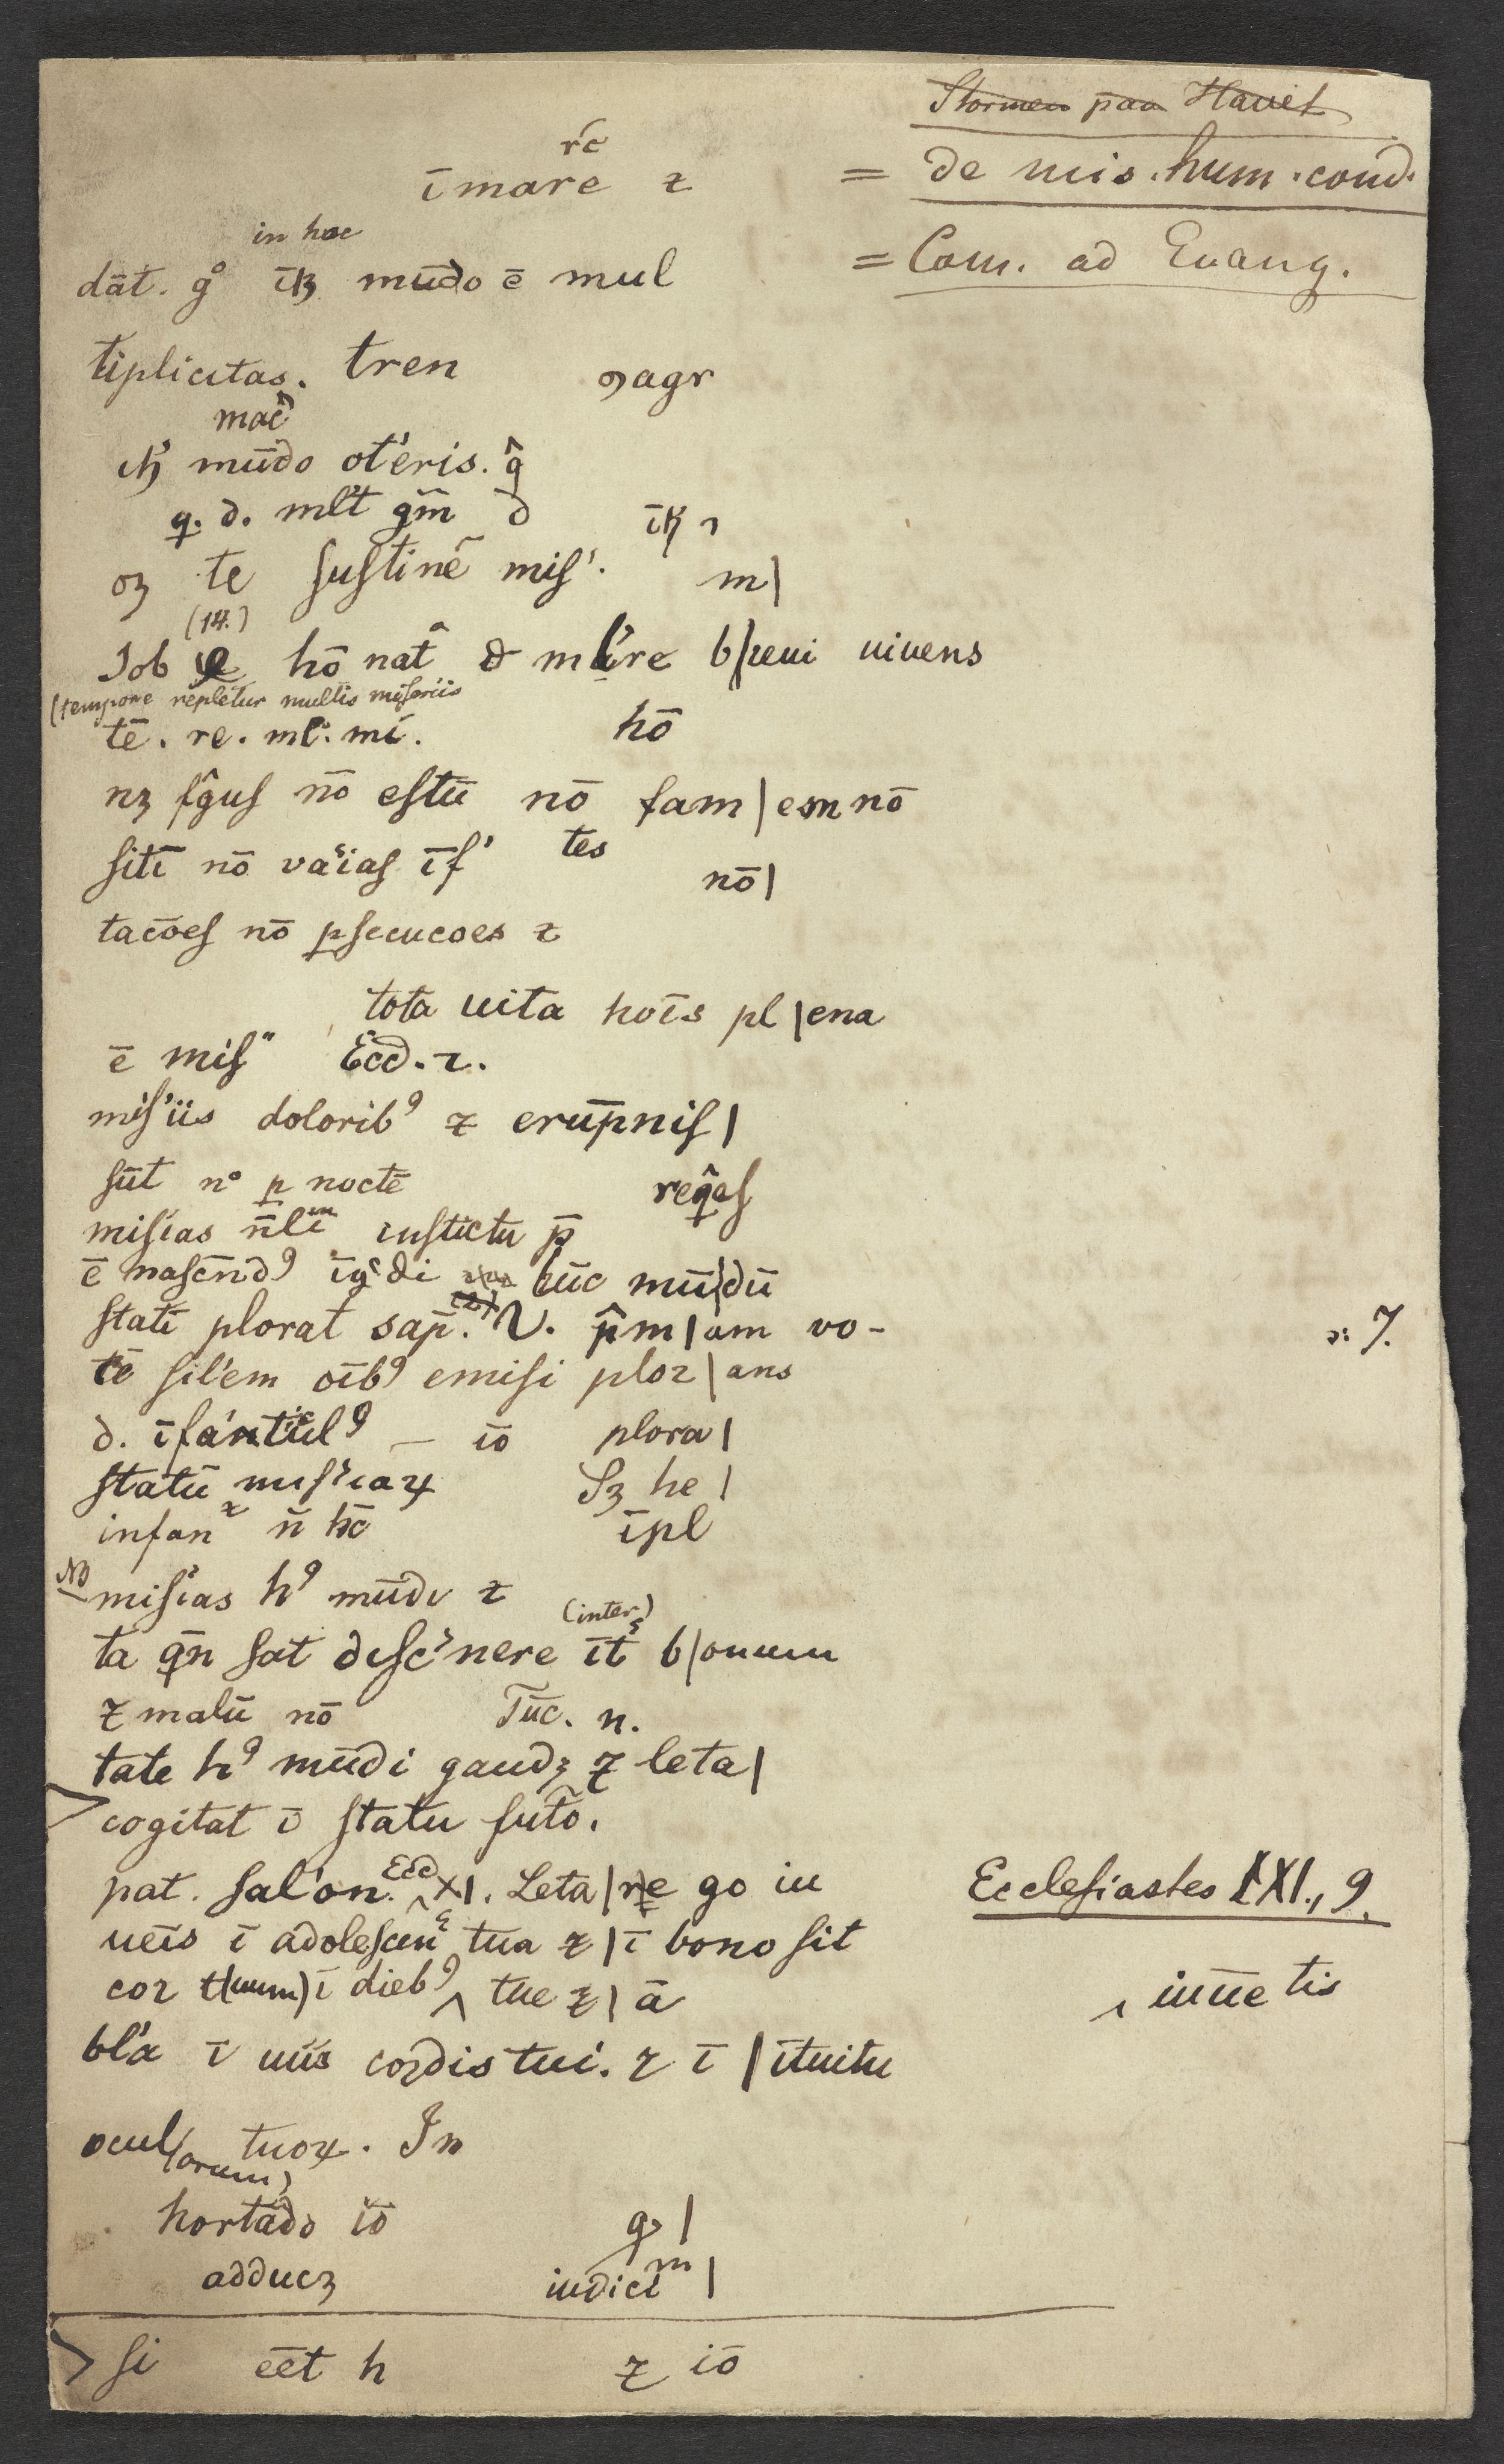 Stormen paa Havet
rc̄
ī mare ⁊ = de mis. hum. cond.
in hoc
dāt. g° īħ mūdo ē mul = Com. ad Euang.
tiplicitas. tren ꝯagr
mac̄
mūdo ot'eris. g̑
q. d. ml't qm̄ d
oꝫ te ſuſtinē miſ'. m|
(14.)
Job hō nat̑ d mł're b|reui uiuens
(tempore repletur multis miseriis
tē. re. ml'. mi. hō
nꝫ ſg̑uſ nō eſtū nō fam|em nō
ſitī nō vaīaſ īf' tes
nō|
tacōeſ nō ꝑſecucoes ⁊
tota uita hoīs pl|ena
ē miſ" Eccl. 2.
miſ'iis dolorib⁹ ⁊ erūpniſ|
ſūt n° ꝑ noctē req̑eſ
miſīas
ē naſcn̄d⁹ īg̑di hūc mū|dū
ſtatī plorat sap. V. p̑m|am vo- ɔ: 7.
cē ſil'em oīb⁹ emiſi ploꝛ|ans
d. īfāntul⁹ — iō plora|
ſtatū miſ'iaꝝ Sꝫ he|
infan n̄ hc̄ īpl
NB miſīas h⁹ mūdi ⁊
(inter)
ta qn̄ ſat diſc'nere īt b|onum
⁊ malū nō Tūc. n.
tate h⁹ mūdi gaudꝫ ⁊ leta|
cogitat ī ſtatu futō.
pat. Sal'on. Eccl XI. Leta|re go iu Ecclesiastes XI., 9.
ueīs ī adoleſcen tua ⁊|ī bono ſit
cor t(uum) ī dieb⁹ ‸ tue ⁊| ā ‸ iuūe tis
bl'a ī uiis coꝛdis tui. ⁊ ī |ītuitu
ocul(orum) tuoꝝ. In
hortādo iō q|
adducꝫ iudiciᵐ|
ſi eēt h ⁊ iō